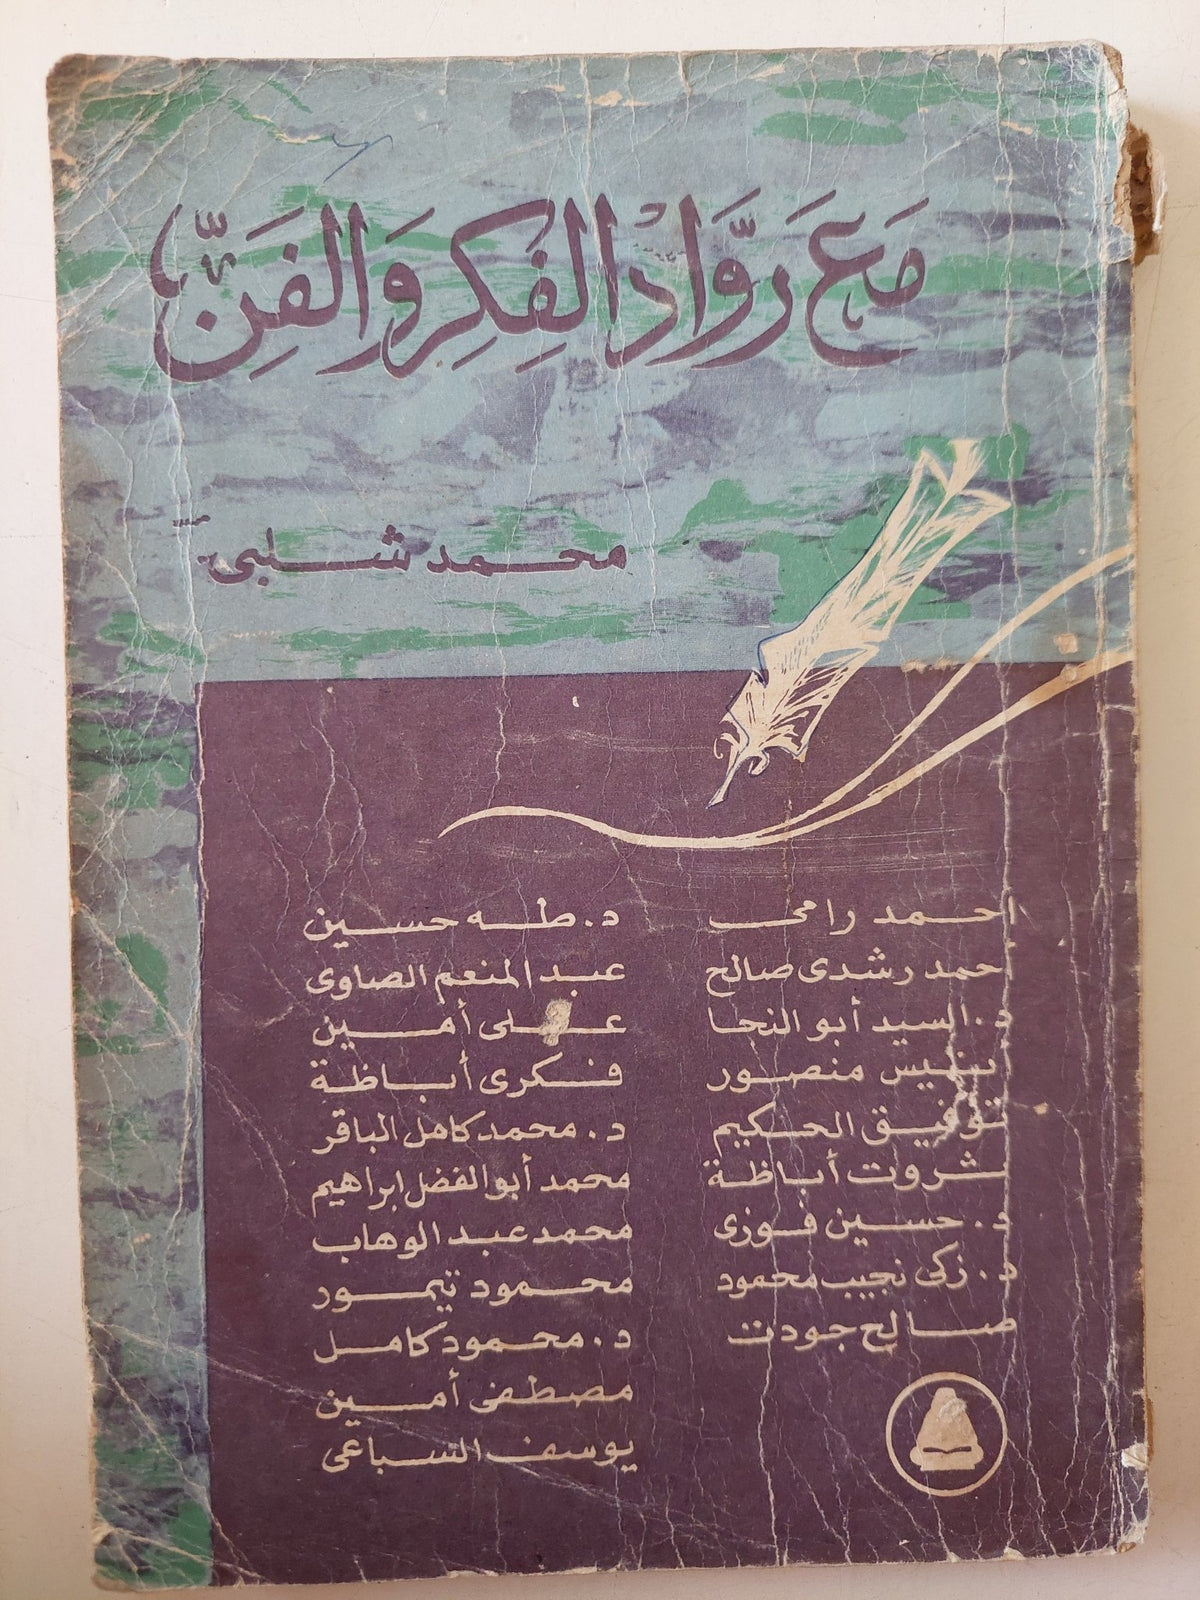 مَع رَوَّاد الفِكر وَالفَنّ
محمد شلبى
احمد رامى
احمد رشدى صالح
د. السيد أبو النجا
أنيس منصور
توفيق الحكيم
ثروت أباظة
د. حسين فوزى
د. زكى نجيب محمود
صالح جودت
د. طه حسين
عبد المنعم الصاوى
على أمين
فكرى أباظة
د. محمد كامل الباقر
محمد أبو الفضل ابراهيم
محمد عبد الوهاب
محمود تيمور
د. محمود كامل
مصطفى أمين
يوسف السباعى